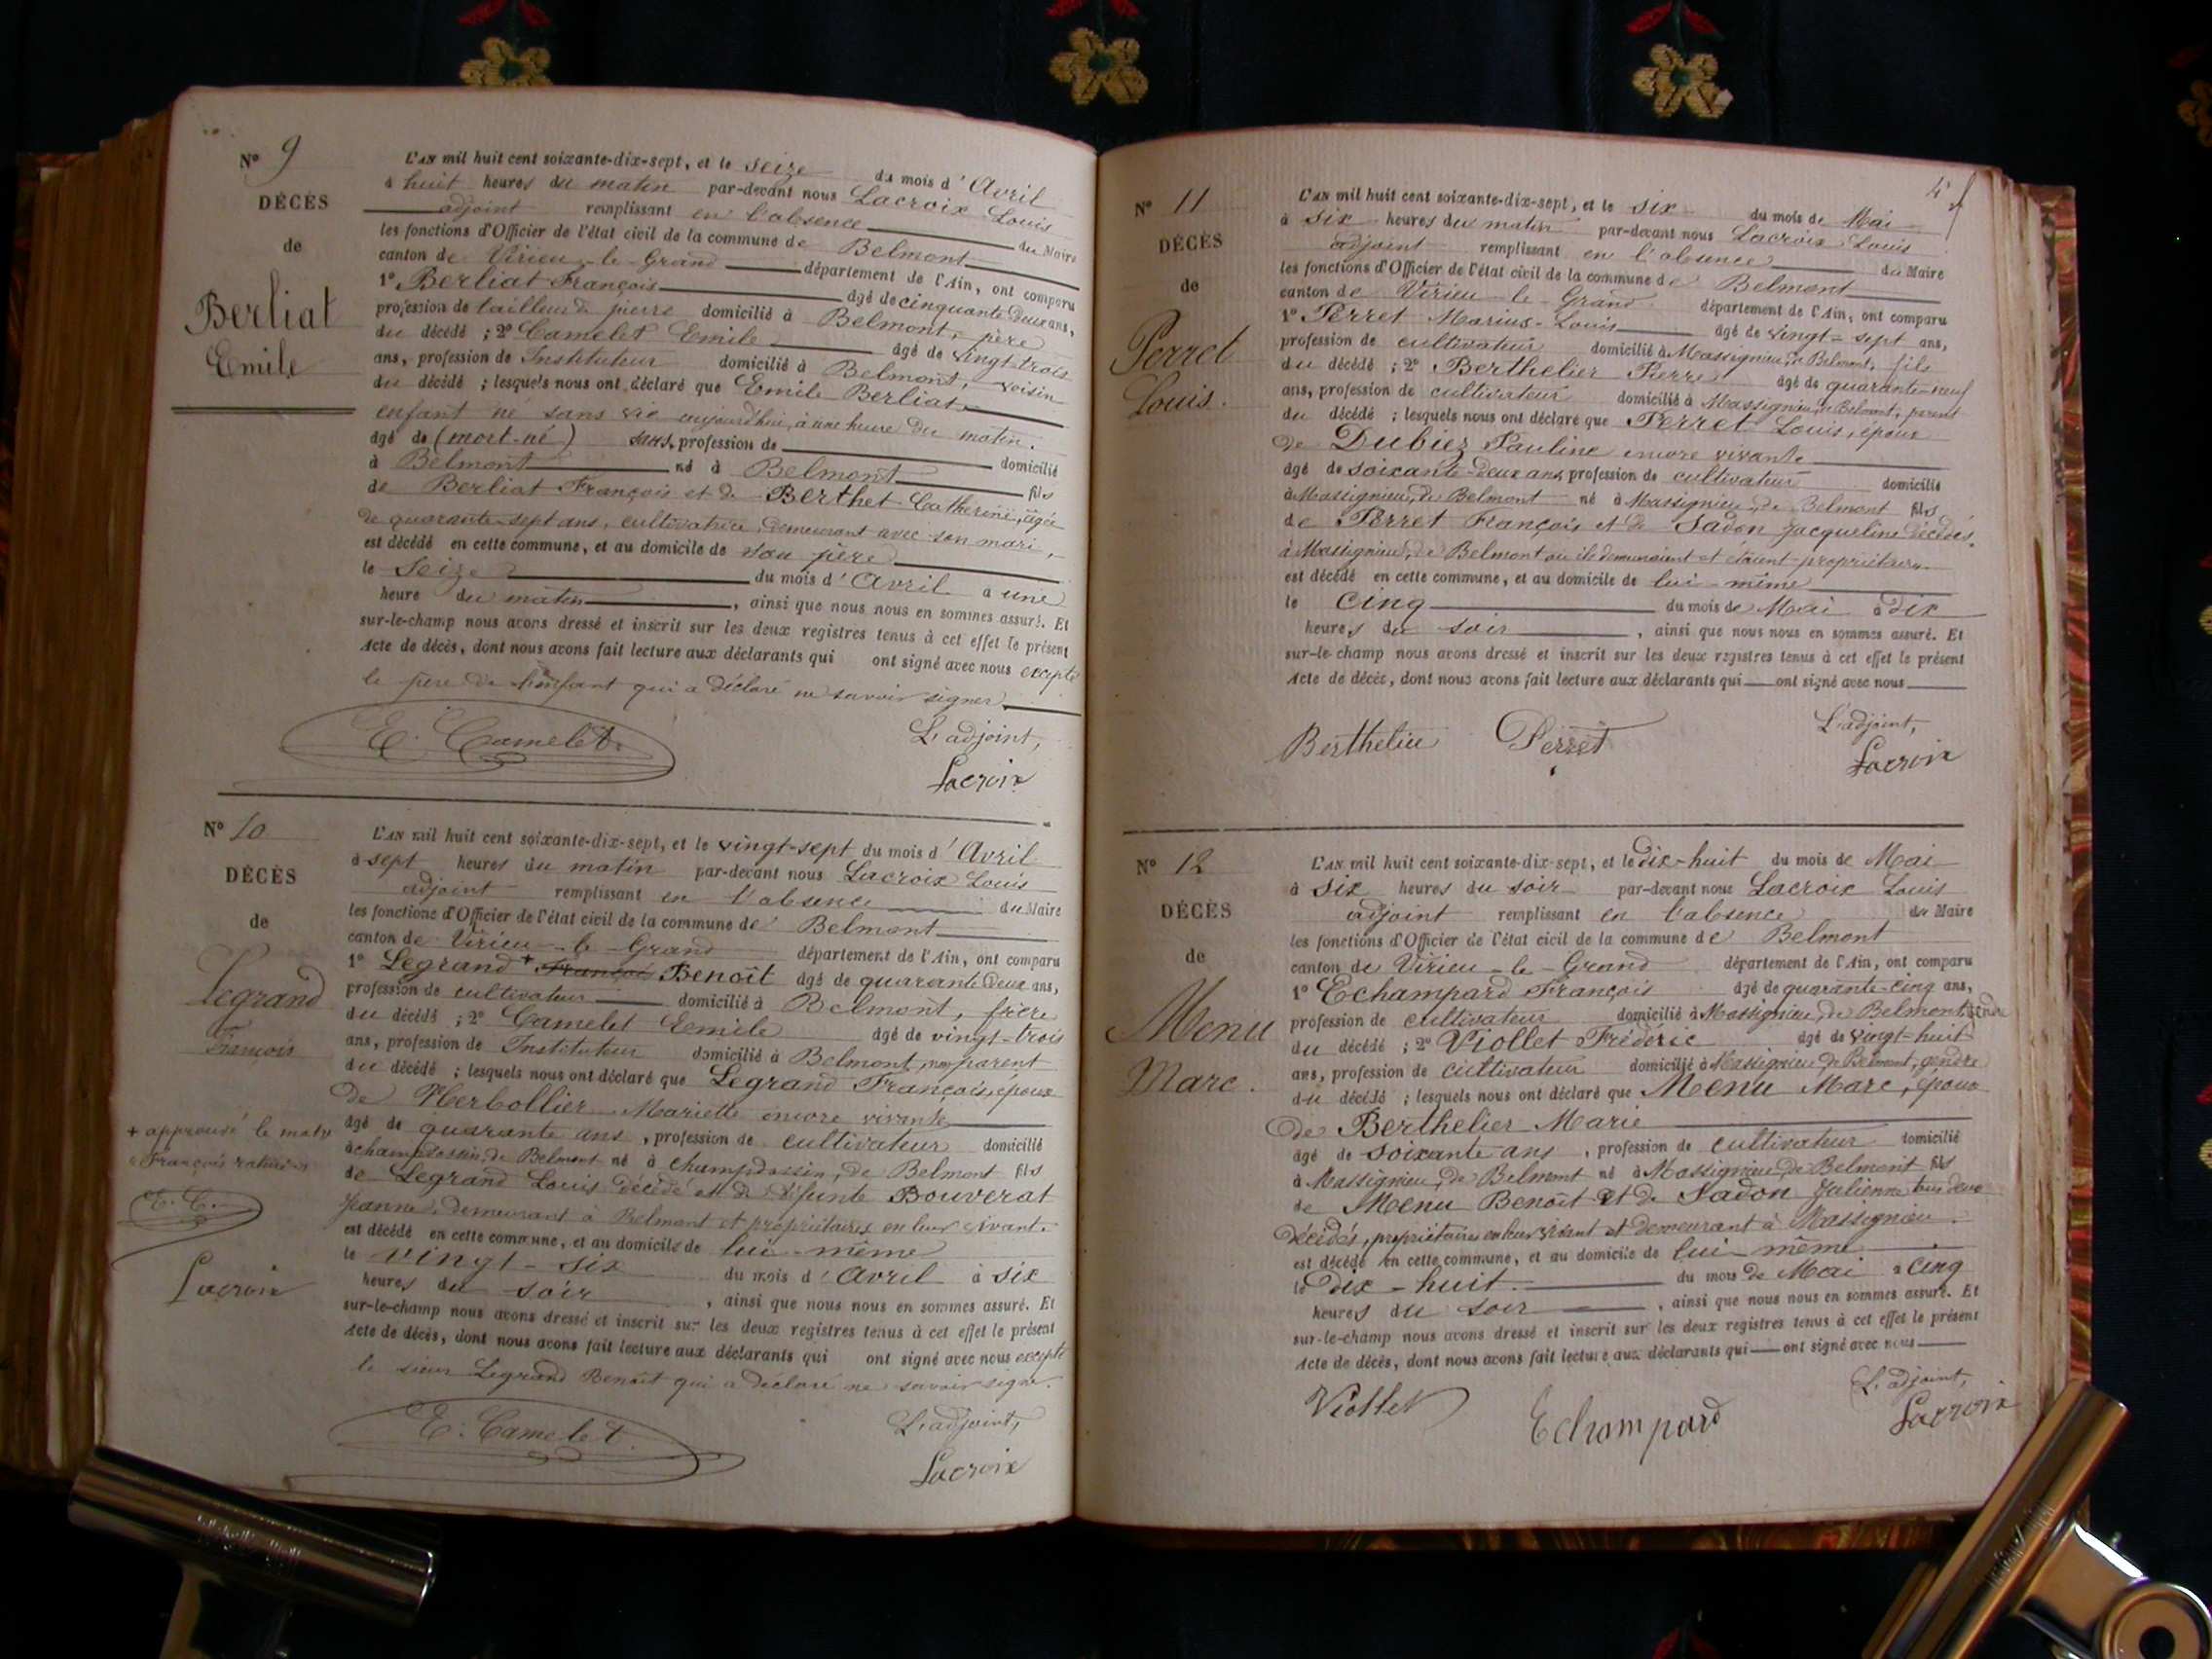 Nº 9
DÉCÈS
de
Berliat
Emile
L'AN mil huit cent soixante-dix-sept, et le seize du mois d'Avril
à huit heures du matin par-devant nous Lacroix Louis
adjoint remplissant en l'absence du Maire
les fonctions d'Officier de l'état civil de la commune de Belmont
canton de Virieu-le-Grand département de l'Ain, ont comparu
1º Berliat François âgé de cinquante deux ans,
profession de tailleur de pierre domicilié à Belmont, père
du décédé ; 2º Camelet Emile âgé de vingt-trois
ans, profession de Instituteur domicilié à Belmont, voisin
du décédé ; lesquels nous ont déclaré que Emile Berliat
enfant né sans vie aujourd'hui, à une heure du matin.
âgé de (mort-né) sans profession de domicilié
à Belmont né à Belmont fils
de Berliat François et de Berthet Catherine, âgée
de quarante-sept ans, cultivatrice, demeurant avec son mari,
est décédé en cette commune, et au domicile de son père
le seize du mois d'Avril à une
heure du matin, ainsi que nous nous en sommes assuré. Et
sur-le-champ nous avons dressé et inscrit sur les deux registres tenus à cet effet le présent
Acte de décès, dont nous avons fait lecture aux déclarants qui ont signé avec nous excepté
le père de l'enfant qui a déclaré ne savoir signer
E. Camelet.
L'adjoint,
Lacroix
Nº 10
DÉCÈS
de
Legrand
François
L'AN mil huit cent soixante-dix-sept, et le vingt-sept du mois d'Avril
à sept heures du matin par-devant nous Lacroix Louis
adjoint remplissant en l'absence du Maire
les fonctions d'Officier de l'état civil de la commune de Belmont
canton de Virieu-le-Grand département de l'Ain, ont comparu
1º Legrand + François Benoît âgé de quarante deux ans,
profession de cultivateur domicilié à Belmont, frère
du décédé ; 2º Camelet Emile âgé de vingt-trois
ans, profession de Instituteur domicilié à Belmont, non parent
du décédé ; lesquels nous ont déclaré que Legrand François, époux
de Herbollier Mariette encore vivante
âgé de quarante ans, profession de cultivateur domicilié
à champdossin, de Belmont né à champdossin, de Belmont fils
de Legrand Louis décédé et de défunte Bouverat
Jeanne, demeurant à Belmont et propriétaires en leur vivant.
est décédé en cette commune, et au domicile de lui-même
le vingt-six du mois d'Avril à six
heures du soir, ainsi que nous nous en sommes assuré. Et
sur-le-champ nous avons dressé et inscrit sur les deux registres tenus à cet effet le présent
Acte de décès, dont nous avons fait lecture aux déclarants qui ont signé avec nous excepté
le sieur Legrand Benoît qui a déclaré ne savoir signer.
+ approuvé le mot
François
E. C.
Lacroix
E. Camelet.
L'adjoint,
Lacroix
4
Nº 11
DÉCÈS
de
Perret
Louis.
L'AN mil huit cent soixante-dix-sept, et le six du mois de Mai
à six heures du matin par-devant nous Lacroix Louis
adjoint remplissant en l'absence du Maire
les fonctions d'Officier de l'état civil de la commune de Belmont
canton de Virieu-le-Grand département de l'Ain, ont comparu
1º Perret Marius-Louis âgé de vingt-sept ans,
profession de cultivateur domicilié à Massignieu, de Belmont, fils
du décédé ; 2º Berthelier Pierre âgé de quarante-neuf
ans, profession de cultivateur domicilié à Massignieu, de Belmont, parent
du décédé ; lesquels nous ont déclaré que Perret Louis, époux
de Dubiez Pauline encore vivante
âgé de soixante-deux ans, profession de cultivateur domicilié
à Massignieu, de Belmont né à Massignieu, de Belmont fils
de Perret François et de Sadon Jacqueline décédés
à Massignieu, de Belmont où ils demeuraient et étaient propriétaires
est décédé en cette commune, et au domicile de lui-même
le cinq du mois de Mai à dix
heures du soir, ainsi que nous nous en sommes assuré. Et
sur-le-champ nous avons dressé et inscrit sur les deux registres tenus à cet effet le présent
Acte de décès, dont nous avons fait lecture aux déclarants qui ont signé avec nous
Berthelier Perret
L'adjoint,
Lacroix
Nº 12
DÉCÈS
de
Menu
Marc.
L'AN mil huit cent soixante-dix-sept, et le dix-huit du mois de Mai
à six heures du soir par-devant nous Lacroix Louis
adjoint remplissant en l'absence du Maire
les fonctions d'Officier de l'état civil de la commune de Belmont
canton de Virieu-le-Grand département de l'Ain, ont comparu
1º Echampard François âgé de quarante-cinq ans,
profession de cultivateur domicilié à Massignieu, de Belmont, gendre
du décédé ; 2º Viollet Frédéric âgé de vingt-huit
ans, profession de cultivateur domicilié à Massignieu de Belmont, gendre
du décédé ; lesquels nous ont déclaré que Menu Marc, époux
de Berthelier Marie
âgé de soixante ans, profession de cultivateur domicilié
à Massignieu, de Belmont né à Massignieu, de Belmont fils
de Menu Benoît et de Sadon Julienne tous deux
décédés, propriétaires en leur vivant et demeurant à Massignieu.
est décédé en cette commune, et au domicile de lui-même
le dix-huit du mois de Mai à cinq
heures du soir, ainsi que nous nous en sommes assuré. Et
sur-le-champ nous avons dressé et inscrit sur les deux registres tenus à cet effet le présent
Acte de décès, dont nous avons fait lecture aux déclarants qui ont signé avec nous
Viollet Echampard
L'adjoint,
Lacroix